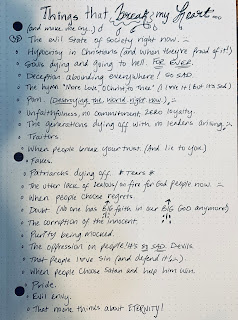 Things that Break my Heart...
(and make me cry...)
The evil State of society right now.
Hypocrisy in Christians (and when they're proud of it!)
Souls dying and going to hell. FOR EVER.
Deception abounding everywhere! SO SAD.
The hymn "More Love, O Christ, to Thee." (I love it! But it's sad)
Sin. (Destroying the world right now)
Unfaithfulness, no commitment. Zero loyalty.
The generations dying off with no leaders arising.
Traitors
When people break your trust. (And lie to you)
Fakes.
Patriarchs dying off. *Tears*
The utter lack of zealous, on fire for God people now.
When people choose regrets.
Doubt (No one has BIG faith in our BIG GOD anymore!)
The corruption of the innocent.
Purity being mocked.
The oppression on people. It's so SAD. Devils.
That people love Sin (and defend it)
When people choose Satan and help him win.
Pride.
Evil envy.
That more things about ETERNITY!